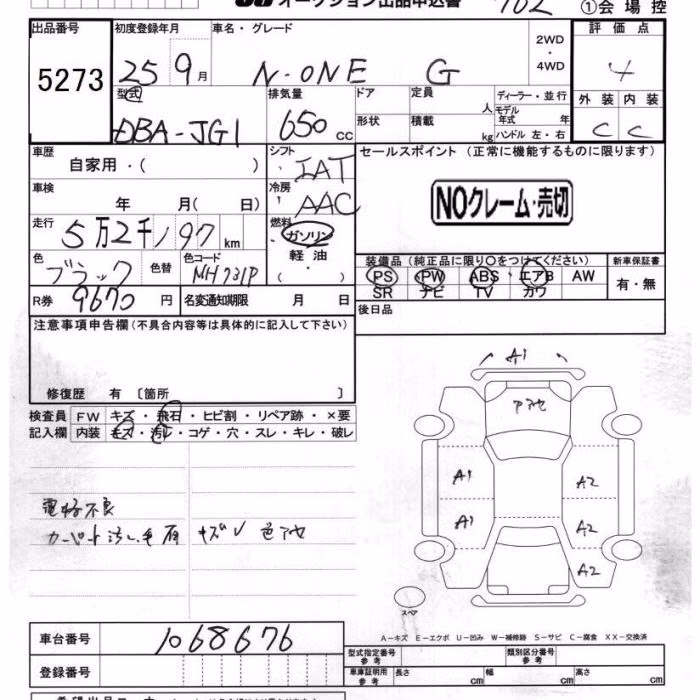 オークション出品申込書 702 ①会場控
出品番号 初度登録年月 車名・グレード 2WD・4WD 評価点
5273 25 9月 N-ONE G 4
型式 排気量 ドア 定員 人 ディーラー・並行 外装 内装
モデル年式 年
DBA-JG1 650cc 形状 積載 kg ハンドル 左・右 C C
車歴 自家用・( ) シフト IAT セールスポイント (正常に機能するものに限ります)
車検 年 月( 日) 冷房 AAC NOクレーム・売切
走行 5万2千197km 燃料 ガソリン・軽油・( )
色 ブラック 色替 色コード NH731P 装備品(純正品に限り○をつけてください) 新車保証書
PS PW ABS エアB AW 有・無
SR ナビ TV カワ
R券 9670円 名変通知期限 月 日 後日品
注意事項申告欄(不具合内容等は具体的に記入して下さい)
修復歴 有 〔箇所 〕
検査員 FW キズ・飛石・ヒビ割・リペア跡・×要
記入欄 内装 キズ・汚レ・コゲ・穴・スレ・キレ・破レ
A1
アセ
A1 A2
A1 A2
A2
スペア
カーペット汚レ
キズ 色アセ
A-キズ E-エクボ U-凹み W-補修跡 S-サビ C-腐食 XX-交換済
車台番号 1068676
型式指定番号 参考 類別区分番号 参考
登録番号 車庫証明用 参考 長さ cm 幅 cm 高さ cm